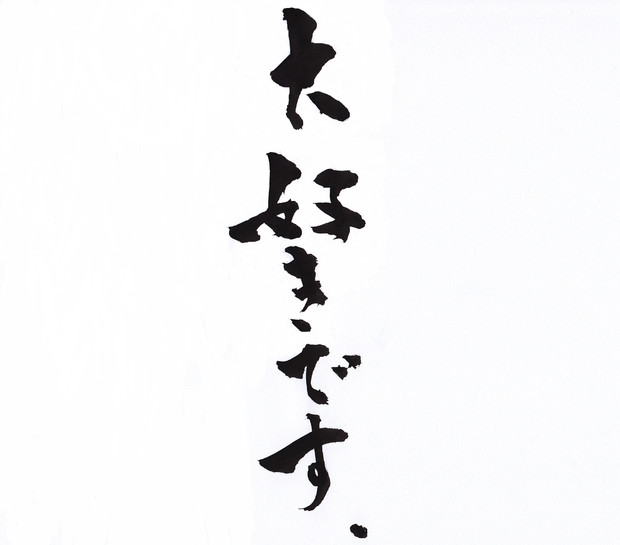 大好きです、